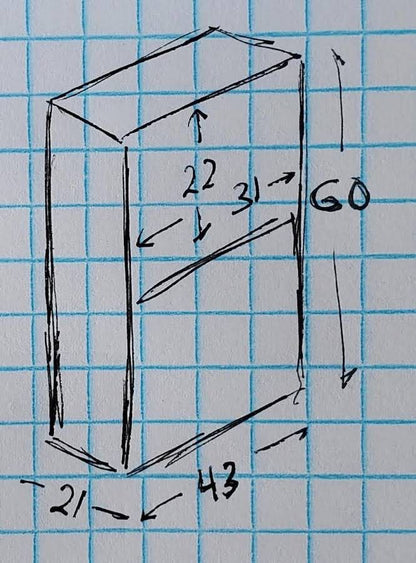 22
31
60
21
43